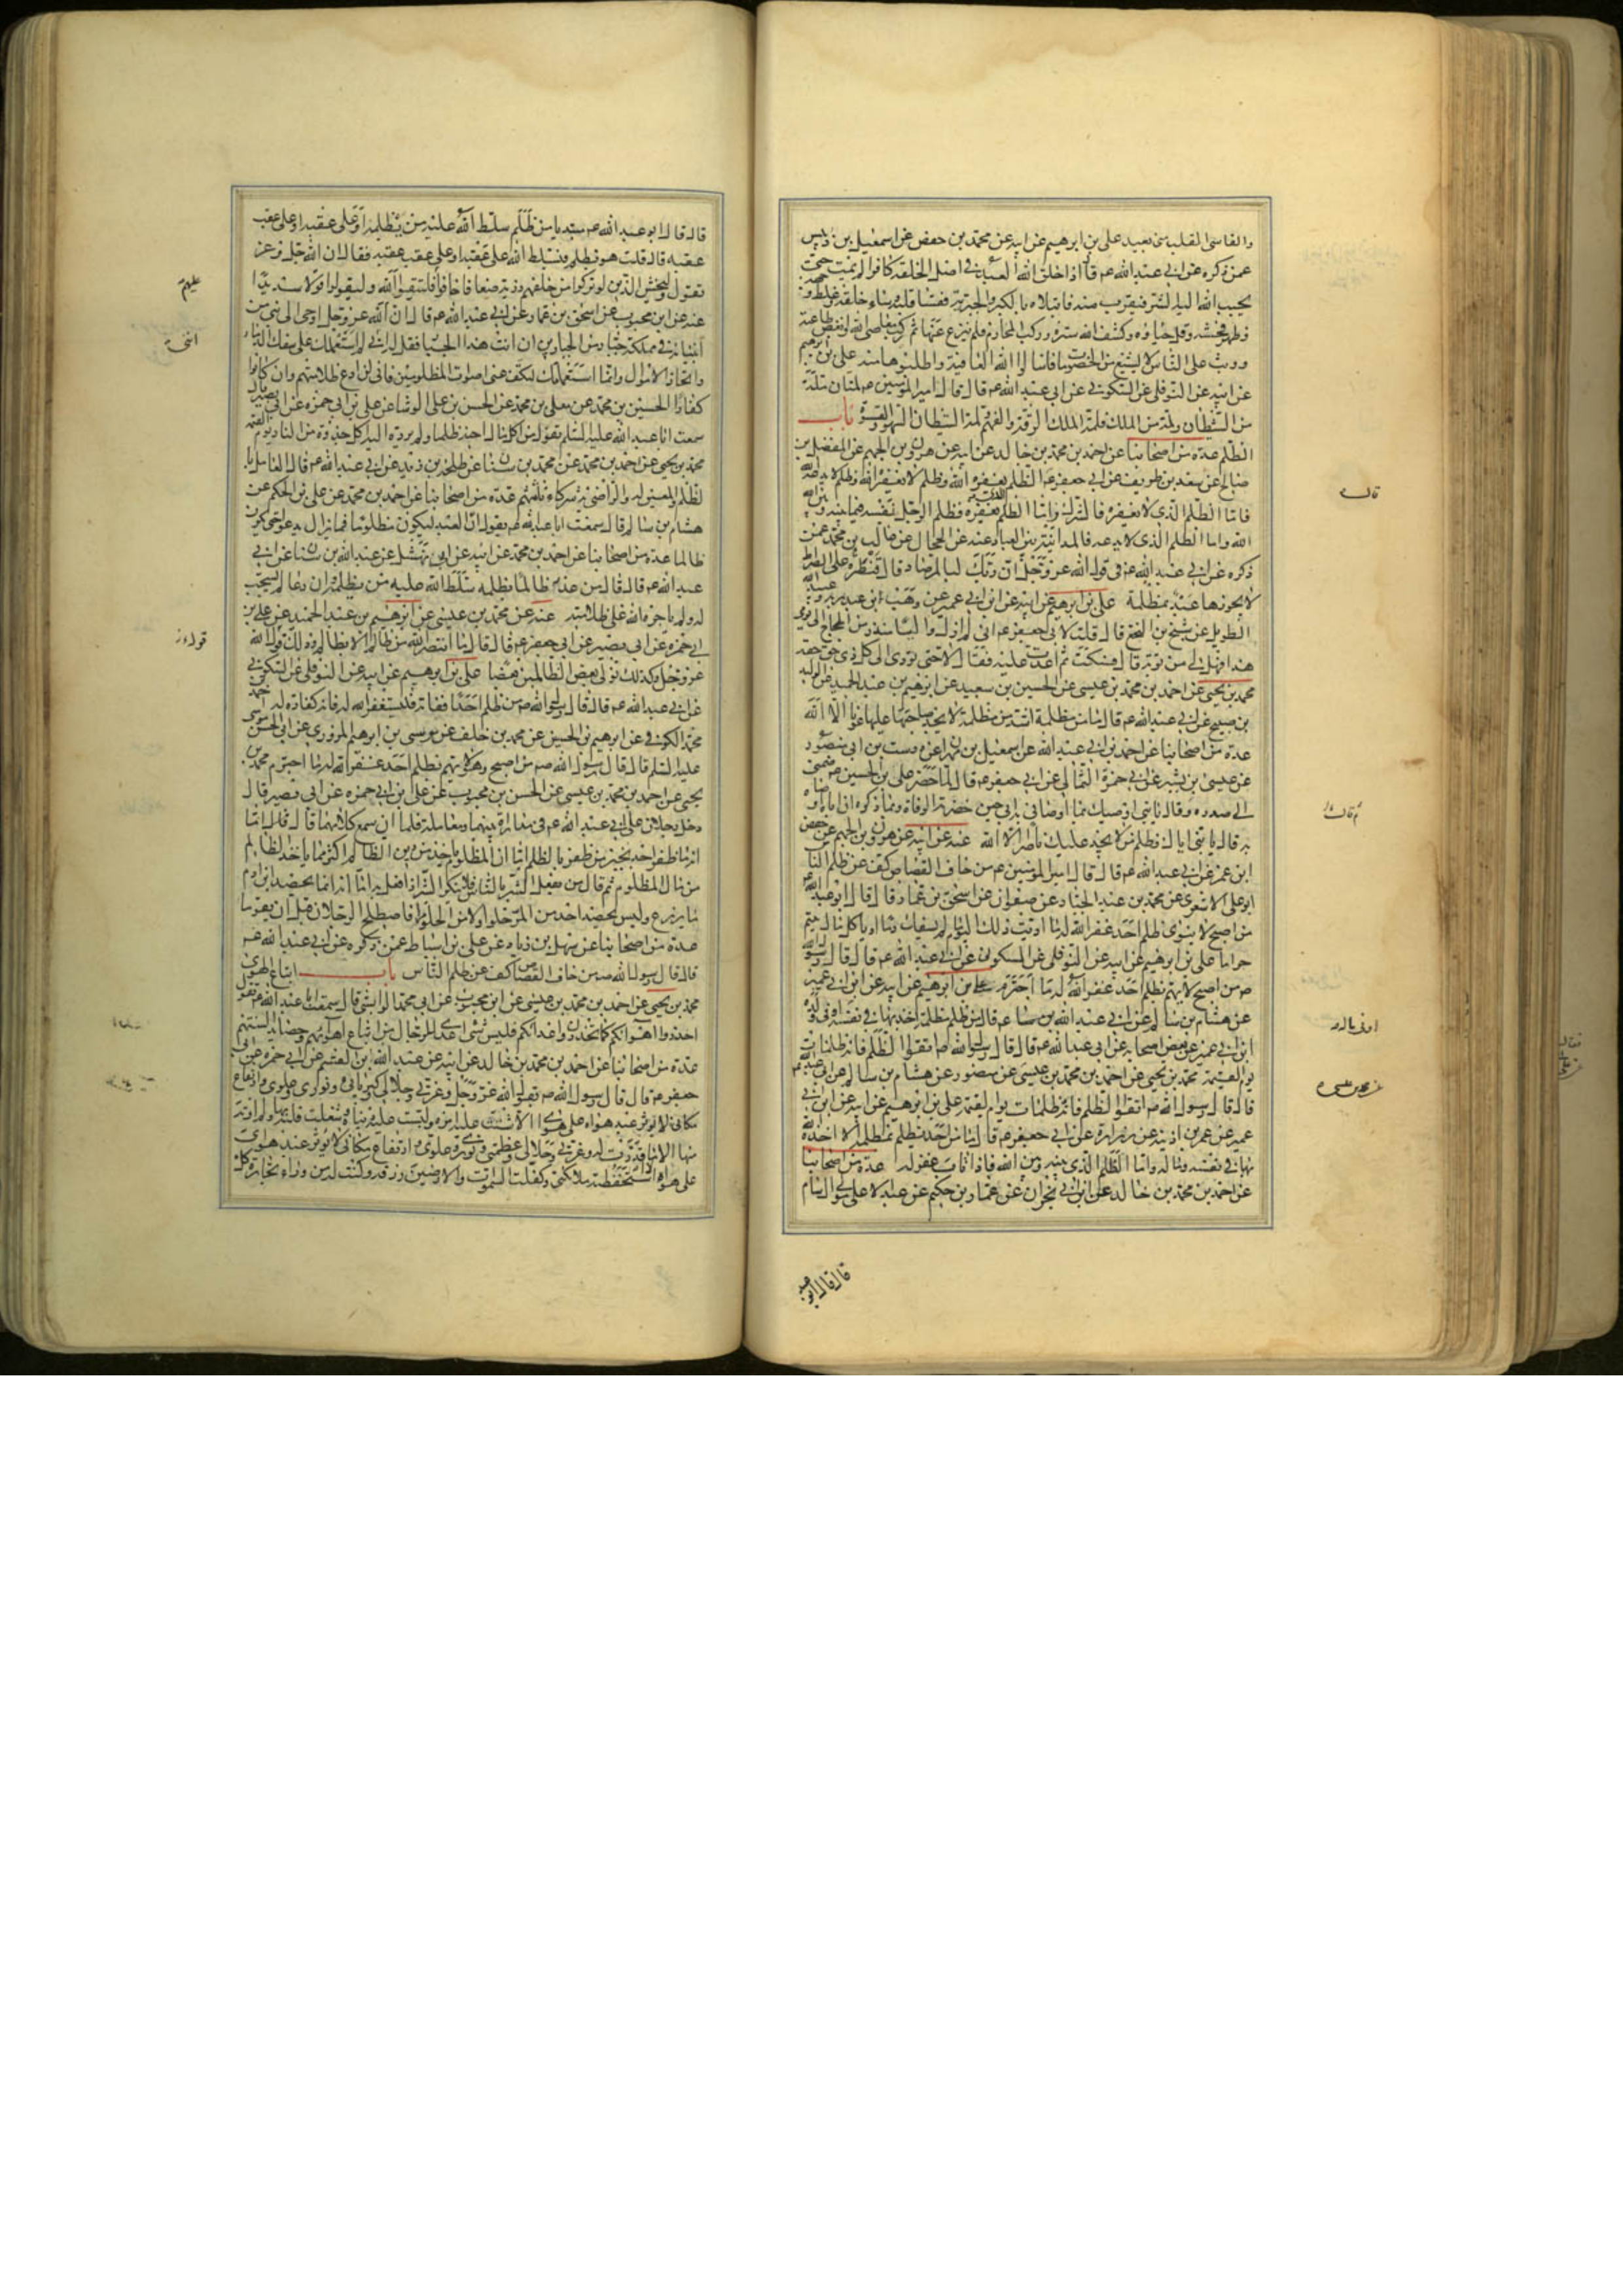 والقاسى القلب منى بعيد على بن ابرهيم عن ابيه عن محمد بن حفص عن اسمعيل بن دبيس
عمن ذكره عن ابى عبد الله ع قال اذا خلق الله العبد فى اصل الخلقة كافرا لم يمت حتى
يحبب الله اليه الشر فيقرب منه فابتلاه بالكبر والجبرية فقسا قلبه وساء خلقه وغلظ وجهه
وظهر فحشه وقل حياؤه وكشف الله ستره وركب المحارم فلم ينزع عنها ثم ركب معاصى الله وابغض طاعته
ووثب على الناس لا يشبع من الخصومات فاسالوا الله العافية واطلبوها منه على بن ابرهيم
عن ابيه عن النوفلى عن السكونى عن ابى عبد الله ع قال قال امير المؤمنين ع لمتان لمة
من الشيطان ولمة من الملك فلمة الملك الرقة والفهم ولمة الشيطان السهو والقسوة باب
الظلم عدة من اصحابنا عن احمد بن محمد بن خالد عن ابيه عن هرون بن الجهم عن المفضل بن
صالح عن سعد بن طريف عن ابى جعفر ع الظلم يغفره الله وظلم لا يغفره الله وظلم لا يدعه الله
فاما الظلم الذى لا يغفره فالشرك واما الظلم الذى يغفره فظلم الرجل نفسه فيما بينه وبين الله
الله واما الظلم الذى لا يدعه فالمداينة بين العباد عنه عن الحجال عن غالب بن محمد عمن
ذكره عن ابى عبد الله ع فى قول الله عز وجل ان ربك لبالمرصاد قال قنطرة على الصراط
لا يجوزها عبد بمظلمة على بن ابرهيم عن ابيه عن ابن ابى عمير عن وهب بن عبد ربه وعبيد الله
الطويل عن شيخ من النخع قال قلت لابى جعفر ع انى لم ازل واليا منذ زمن الحجاج الى يومى
هذا فهل لى من توبة قال فسكت ثم اعدت عليه فقال لا حتى تؤدى الى كل ذى حق حقه
محمد بن يحيى عن احمد بن محمد بن عيسى عن الحسين بن سعيد عن ابرهيم بن عبد الحميد عن الوليد
بن صبيح عن ابى عبد الله ع قال ما من مظلمة اشد من مظلمة لا يجد صاحبها عليها عونا الا الله
عدة من اصحابنا عن احمد بن ابى عبد الله عن اسمعيل بن مهران عن درست بن ابى منصور
عن عيسى بن بشير عن ابى حمزة الثمالى عن ابى جعفر ع قال لما حضر على بن الحسين ع ضمنى
الى صدره وقال يا بنى اوصيك بما اوصانى به ابى حين حضرته الوفاة ومما ذكر ان اباه اوصاه
به قال يا بنى اياك وظلم من لا يجد عليك ناصرا الا الله عنه عن ابيه عن هرون بن الجهم عن حفص
ابن عمر عن ابى عبد الله ع قال قال امير المؤمنين ع من خاف القصاص كف عن ظلم الناس
ابو على الاشعرى عن محمد بن عبد الجبار عن صفوان عن اسحق بن عمار قال قال ابو عبد الله
من اصبح لا ينوى ظلم احد غفر الله له ما اذنب ذلك اليوم ما لم يسفك دما او ياكل مال يتيم
حراما على بن ابرهيم عن ابيه عن النوفلى عن السكونى عن ابى عبد الله ع قال قال رسول الله
ص من اصبح لا يهم بظلم احد غفر الله له ما اجترم على بن ابرهيم عن ابيه عن ابن ابى عمير
عن هشام بن سالم عن ابى عبد الله ع قال من ظلم مظلمة اخذ بها فى نفسه او فى ولده
ابن ابى عمير عن بعض اصحابه عن ابى عبد الله ع قال قال رسول الله ص اتقوا الظلم فانه ظلمات
يوم القيمة محمد بن يحيى عن احمد بن محمد بن عيسى عن منصور عن هشام بن سالم عن ابى عبد الله ع
قال قال رسول الله ص اتقوا الظلم فانه ظلمات يوم القيمة على بن ابرهيم عن ابيه عن ابن ابى
عمير عن عمر بن اذينة عن زرارة عن ابى جعفر ع قال ما من احد يظلم بمظلمة الا اخذه الله
بها فى نفسه وماله واما الظلم الذى بينه وبين الله فاذا تاب غفر له عدة من اصحابنا
عن احمد بن محمد بن خالد عن ابن ابى نجران عن عمار بن حكيم عن عبد الاعلى مولى ال سام
قال قال ابو عبد
قال
قال قال ابو عبد الله ع مبتديا من ظلم سلط الله عليه من يظلمه او على عقبه او على عقب
عقبه قال قلت هو يظلم فيسلط الله على عقبه او على عقب عقبه فقال ان الله جل وعز
يقول وليخش الذين لو تركوا من خلفهم ذرية ضعافا خافوا فليتقوا الله وليقولوا قولا سديدا
عنه عن ابن محبوب عن اسحق بن عمار عن ابى عبد الله ع قال ان الله عز وجل اوحى الى نبى من
انبيائه فى مملكة جبار من الجبارين ان ائت هذا الجبار فقل له اننى لم استعملك على سفك الدماء
واتخاذ الاموال وانما استعملتك لتكف عنى اصوات المظلومين فانى لن ادع ظلامتهم وان كانوا
كفارا الحسين بن محمد عن معلى بن محمد عن الحسن بن على الوشا عن على بن ابى حمزه عن ابى بصير قال
سمعت ابا عبد الله عليه السلم يقول من اكل مال اخيه ظلما ولم يرده اليه اكل جذوة من النار يوم القيمة
محمد بن يحيى عن احمد بن محمد عن محمد بن سنان عن طلحة بن زيد عن ابى عبد الله ع قال العامل با
لظلم والمعين له والراضى به شركاء ثلثتهم عدة من اصحابنا عن احمد بن محمد عن على بن الحكم عن
هشام بن سالم قال سمعت ابا عبد الله ع يقول ان العبد ليكون مظلوما فما يزال يدعو حتى يكون
ظالما عدة من اصحابنا عن احمد بن محمد عن ابيه عن ابى نهشل عن عبد الله بن سنان عن ابى
عبد الله ع قال قال من عذر ظالما بظلمه سلط الله عليه من يظلمه وان دعا لم يستجب
له ولم ياجره الله على ظلامته عنه عن محمد بن عيسى عن ابرهيم بن عبد الحميد عن على بن
ابى حمزه عن ابى بصير عن ابى جعفر ع قال قال ما انتصر الله من ظالم الا بظالم وذلك قول الله
عز وجل وكذلك نولى بعض الظالمين بعضا على بن ابرهيم عن ابيه عن النوفلى عن السكونى
عن ابى عبد الله ع قال قال رسول الله ص من ظلم احدا ففاته فليستغفر الله له فانه كفارة له احمد بن
محمد الكوفى عن ابرهيم بن الحسين عن محمد بن خلف عن موسى بن ابرهيم المروزى عن ابى الحسن موسى
عليه السلم قال قال رسول الله ص من اصبح وهو لا يهم بظلم احد غفر الله له ما اجترم محمد بن
يحيى عن احمد بن محمد بن عيسى عن الحسن بن محبوب عن على بن ابى حمزه عن ابى بصير قال
دخل رجلان على ابى عبد الله ع فى مداراة بينهما ومعاملة فلما ان سمع كلامهما قال قال اما
انه ما ظفر احد بخير من ظفر بالظلم اما ان المظلوم ياخذ من دين الظالم اكثر مما ياخذ الظالم
من مال المظلوم ثم قال من يفعل الشر بالناس فلا ينكر الشر اذا فعل به اما انه انما يحصد ابن ادم
ما يزرع وليس يحصد احد من المر حلوا ولا من الحلو مرا فاصطلح الرجلان قبل ان يقوما
عدة من اصحابنا عن سهل بن زياد عن على بن اسباط عمن ذكره عن ابى عبد الله ع
قال قال رسول الله ص من خاف القصاص كف عن ظلم الناس باب اتباع الهوى
محمد بن يحيى عن احمد بن محمد بن عيسى عن ابن محبوب عن ابى محمد الوابشى قال سمعت ابا عبد الله ع يقول
احذروا اهوائكم كما تحذرون اعدائكم فليس شىء اعدى للرجال من اتباع اهوائهم وحصائد السنتهم
عدة من اصحابنا عن احمد بن محمد بن خالد عن ابيه عن عبد الله بن القسم عن ابى حمزه عن ابى
جعفر ع قال قال رسول الله ص يقول الله عز وجل وعزتى وجلالى وكبريائى ونورى وعلوى وارتفاع
مكانى لا يؤثر عبد هواه على هواى الا شتت عليه امره ولبست عليه دنياه وشغلت قلبه بها ولم اوته
منها الا ما قدرت له وعزتى وجلالى وعظمتى ونورى وعلوى وارتفاع مكانى لا يؤثر عبد هواى
على هواه الا استحفظته ملائكتى وكفلت السموات والارضين رزقه وكنت له من وراء تجارة كل